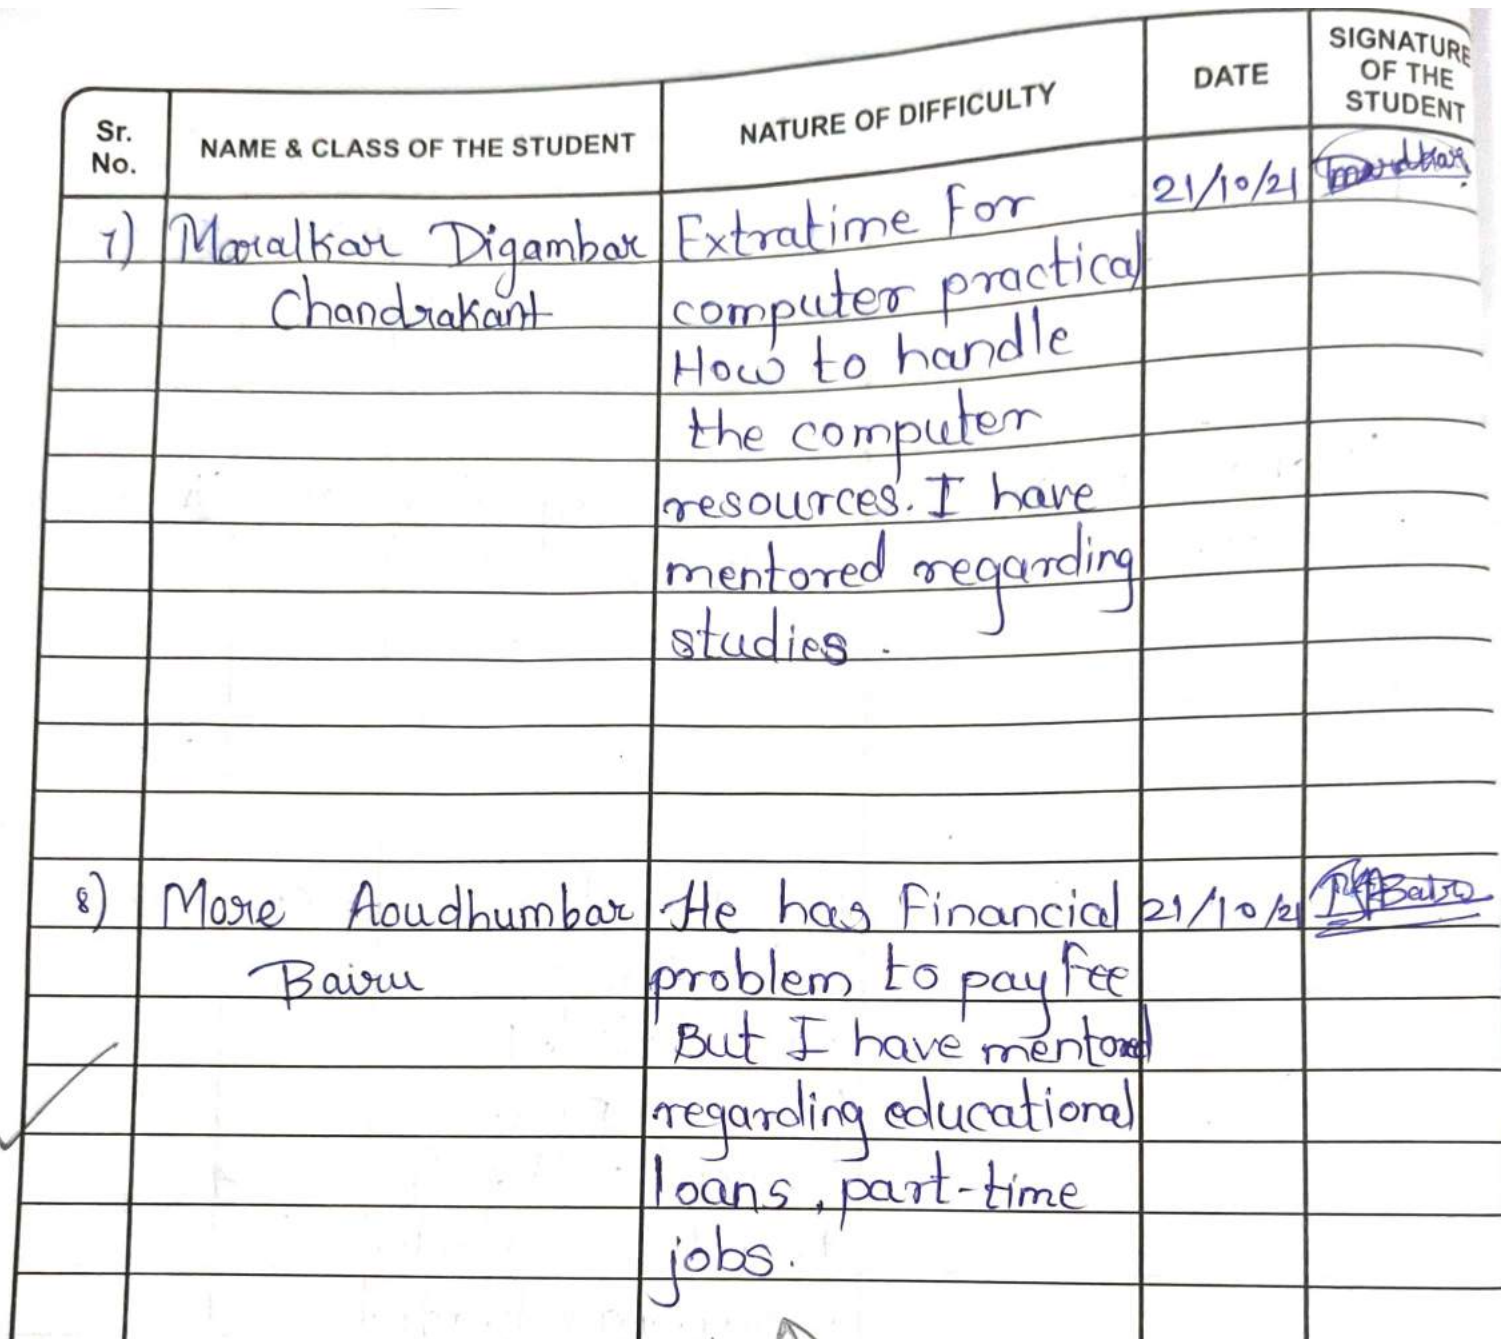 Sr. No.
NAME & CLASS OF THE STUDENT
NATURE OF DIFFICULTY
DATE
SIGNATURE OF THE STUDENT
7) Maralkar Digambar Extratime For 21/10/21
Chandrakant computer practical
How to handle
the computer
resources. I have
mentored regarding
studies.
8) More Aoudhumbar He has Financial 21/10/21
Bairu problem to pay Fee
But I have mentored
regarding educational
loans, part-time
jobs.